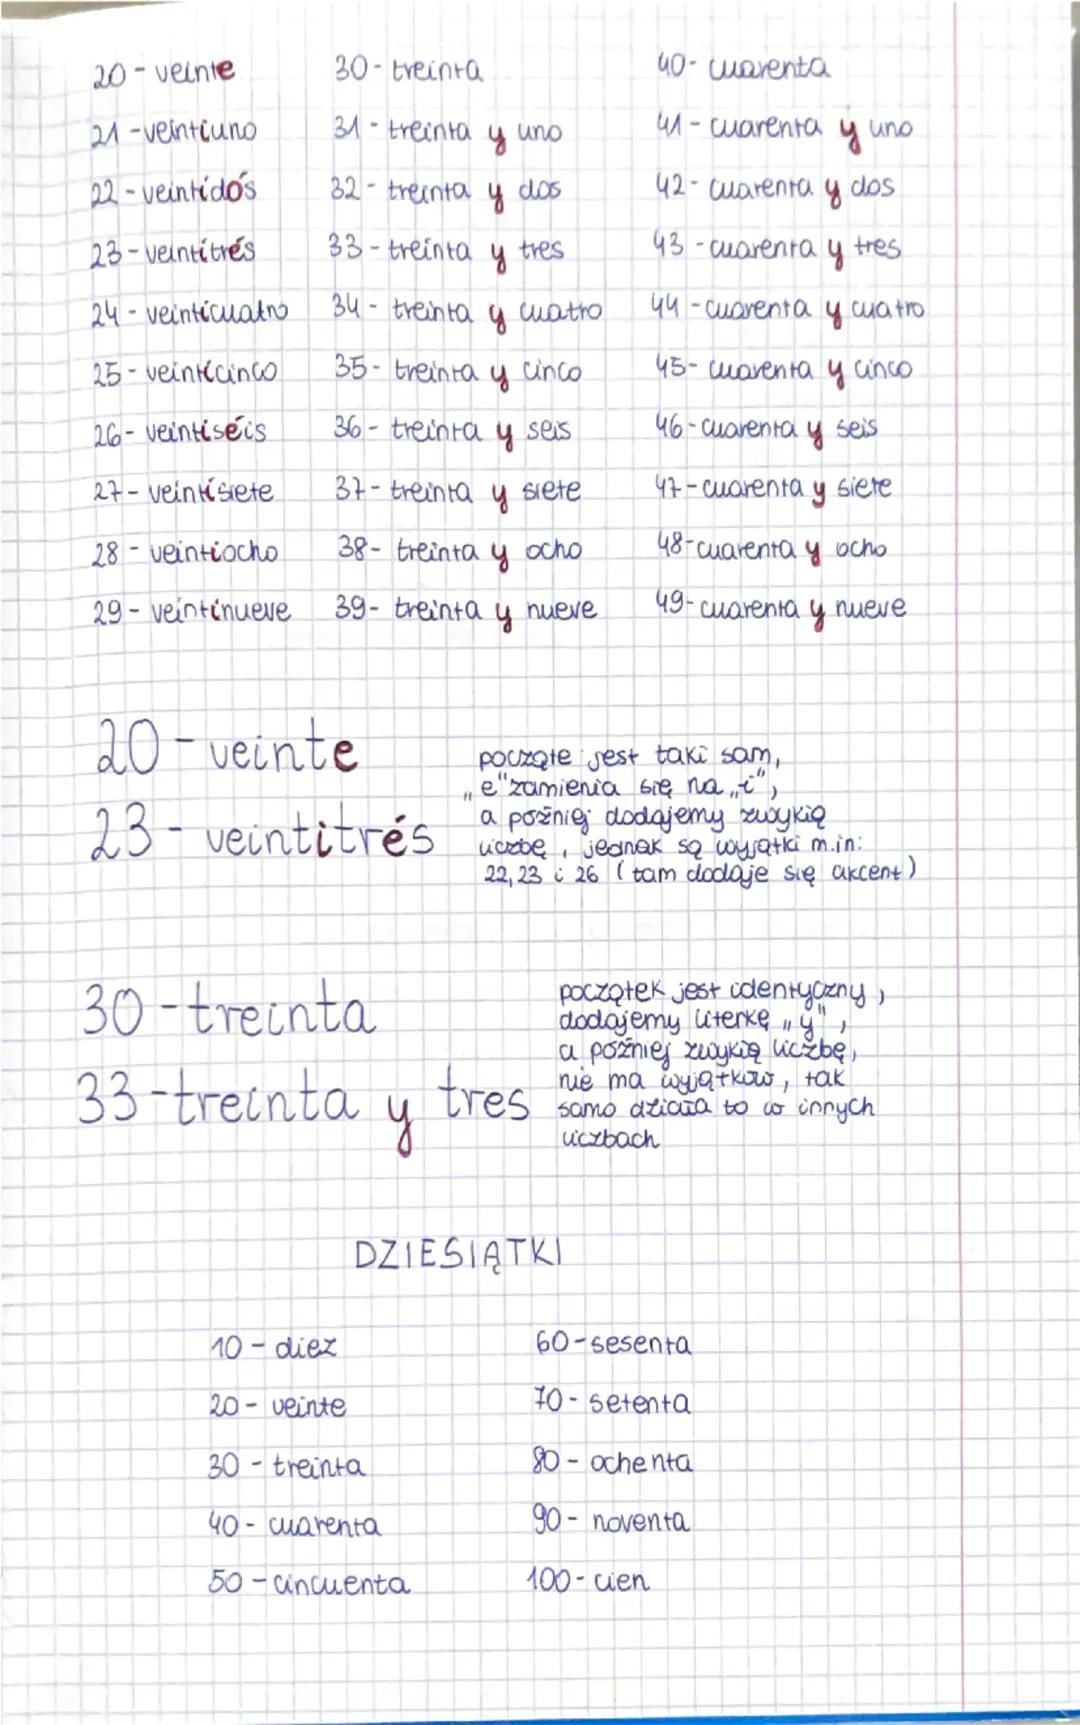 20 - veinte 30 - treinta 40 - cuarenta
21 - veintiuno 31 - treinta y uno 41 - cuarenta y uno
22 - veintidós 32 - treinta y dos 42 - cuarenta y dos
23 - veintitrés 33 - treinta y tres 43 - cuarenta y tres
24 - veinticuatro 34 - treinta y cuatro 44 - cuarenta y cuatro
25 - veinticinco 35 - treinta y cinco 45 - cuarenta y cinco
26 - veintiséis 36 - treinta y seis 46 - cuarenta y seis
27 - veintisiete 37 - treinta y siete 47 - cuarenta y siete
28 - veintiocho 38 - treinta y ocho 48 - cuarenta y ocho
29 - veintinueve 39 - treinta y nueve 49 - cuarenta y nueve
20 - veinte
23 - veintitrés
począte jest taki sam,
„e" zamienia się na „i",
a później dodajemy zwykłą
liczbę, jednak są wyjątki m.in:
22, 23 i 26 (tam dodaje się akcent)
30 - treinta
33 - treinta y tres
początek jest identyczny,
dodajemy literkę „y",
a później zwykłą liczbę,
nie ma wyjątków, tak
samo działa to w innych
liczbach
DZIESIĄTKI
10 - diez 60 - sesenta
20 - veinte 70 - setenta
30 - treinta 80 - ochenta
40 - cuarenta 90 - noventa
50 - cincuenta 100 - cien